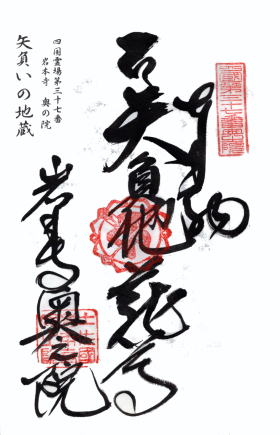 奉納
矢負地蔵尊
岩本寺奥之院
四国霊場第三十七番
岩本寺 奥の院
矢負いの地蔵